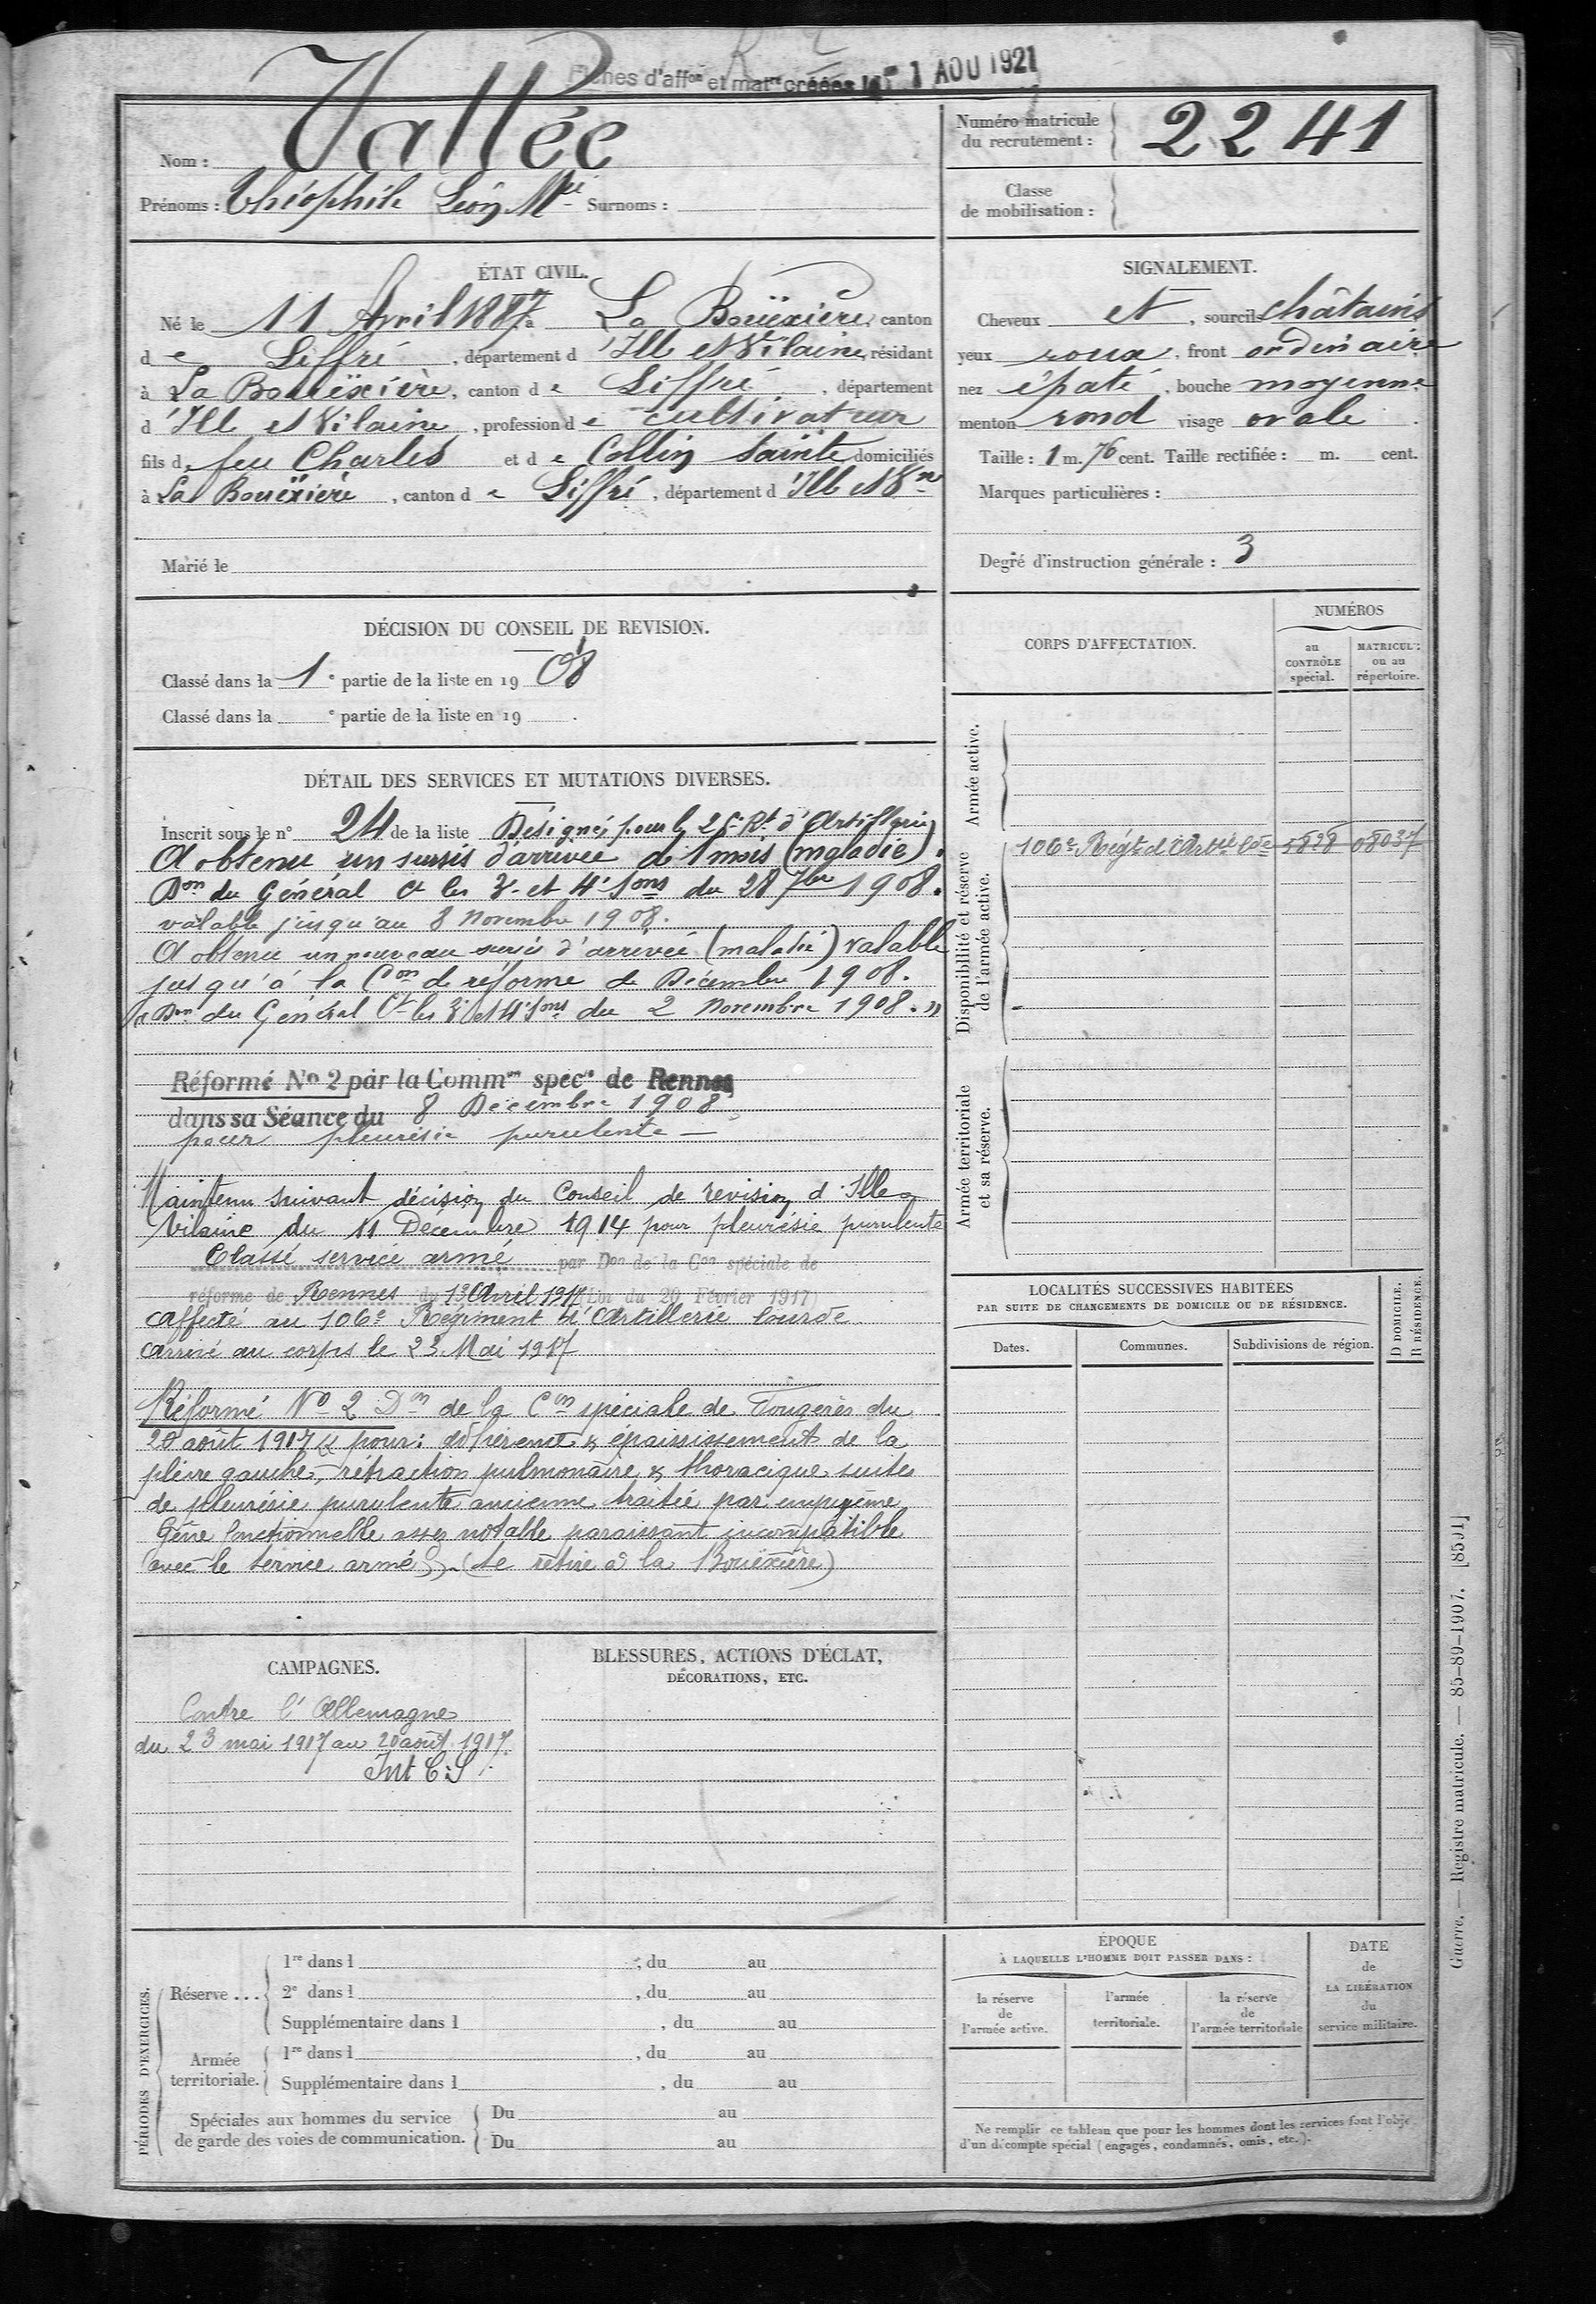 Fiches d'affon et matle créées le 1 AOU 1921
Nom : Vallée
Prénoms : Théophile Léon Mie Surnoms :
Numéro matricule
du recrutement : 2241
Classe
de mobilisation :
ÉTAT CIVIL.
Né le 11 Avril 1887 à La Bouëxière, canton
de Liffré, département d'Ille et Vilaine, résidant
à La Bouëxière, canton de Liffré, département
d'Ille et Vilaine, profession de cultivateur
fils de feu Charles et de Collin Sainte domiciliés
à La Bouëxière, canton de Liffré, département d'Ille et Vne
Marié le
SIGNALEMENT.
Cheveux et, sourcils châtains
yeux roux, front ordinaire
nez épaté, bouche moyenne
menton rond visage ovale.
Taille : 1 m. 76 cent. Taille rectifiée : m. cent.
Marques particulières :
Degré d'instruction générale : 3
DÉCISION DU CONSEIL DE REVISION.
Classé dans la 1e partie de la liste en 1908
Classé dans la e partie de la liste en 19 .
DÉTAIL DES SERVICES ET MUTATIONS DIVERSES.
Inscrit sous le n° 24 de la liste Désigné pour le Rt d'Artillerie
A obtenu un sursis d'arrivée de 1 mois (maladie).
Don du Général Ct les 3e et 4e Sons du 28 7bre 1908.
valable jusqu'au 8 Novembre 1908.
A obtenu un nouveau sursis d'arrivée (maladie) valable
jusqu'à la Con de réforme de Décembre 1908.
« Don du Général Ct les 3e et 4e Sons du 2 Novembre 1908. »
Réformé No 2 par la Common spéc le de Rennes
dans sa Séance du 8 Décembre 1908
pour pleurésie purulente —
Maintenu suivant décision du Conseil de revision d'Ille &
Vilaine du 11 Décembre 1914 pour pleurésie purulente
Classé service armé par Don de la Con spéciale de
réforme de Rennes du 13 Avril 1917 (Loi du 20 Février 1917)
affecté au 106e Régiment d'Artillerie lourde
arrivé au corps le 23 Mai 1917
Réformé No 2 Don de la Con spéciale de Fougères du
20 août 1917 « pour : adhérence & épaississement de la
plèvre gauche, rétraction pulmonaire & thoracique suites
de pleurésie purulente ancienne traitée par empyème
Gêne fonctionnelle assez notable paraissant incompatible
avec le service armé ». (se retire à la Bouëxière)
CORPS D'AFFECTATION.
NUMÉROS
au
CONTRÔLE
spécial.
MATRICULE
ou au
répertoire.
Armée active.
Disponibilité et réserve
de l'armée active.
106e Régt d'Artie Lde 5828 08037
Armée territoriale
et sa réserve.
LOCALITÉS SUCCESSIVES HABITÉES
PAR SUITE DE CHANGEMENTS DE DOMICILE OU DE RÉSIDENCE.
Dates.
Communes.
Subdivisions de région.
D DOMICILE.
R RÉSIDENCE.
CAMPAGNES.
Contre l'Allemagne
du 23 mai 1917 au 20 août 1917.
Int C.S.
BLESSURES, ACTIONS D'ÉCLAT,
DÉCORATIONS, ETC.
PÉRIODES D'EXERCICES.
Réserve ...
1re dans l , du au
2e dans l , du au
Supplémentaire dans l , du au
Armée
territoriale.
1re dans l , du au
Supplémentaire dans l , du au
Spéciales aux hommes du service
de garde des voies de communication.
Du au
Du au
ÉPOQUE
À LAQUELLE L'HOMME DOIT PASSER DANS :
la réserve
de
l'armée active.
l'armée
territoriale.
la réserve
de
l'armée territoriale
DATE
de
LA LIBÉRATION
du
service militaire.
Ne remplir ce tableau que pour les hommes dont les services font l'obje
d'un décompte spécial (engagés, condamnés, omis, etc.).
Guerre. — Registre matricule. — 85-89-1907. [8501]